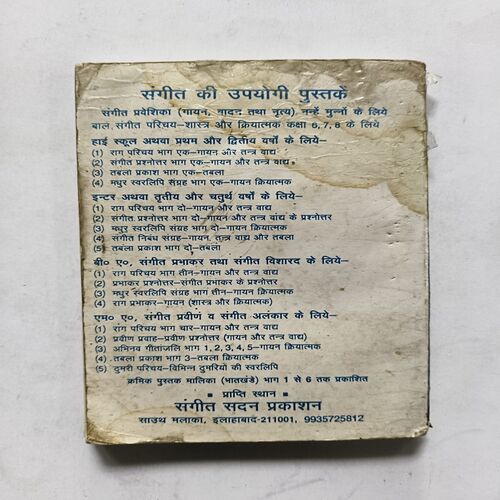 संगीत की उपयोगी पुस्तकें
संगीत प्रवेशिका (गायन, वादन तथा नृत्य) नन्हें मुन्नों के लिये
बाल संगीत परिचय-शास्त्र और क्रियात्मक कक्षा 6,7,8 के लिये
हाई स्कूल अथवा प्रथम और द्वितीय वर्षों के लिये–
(1) राग परिचय भाग एक–गायन और तन्त्र वाद्य
(2) संगीत प्रश्नोत्तर भाग एक–गायन और तन्त्र वाद्य
(3) तबला प्रकाश भाग एक–तबला
(4) मधुर स्वरलिपि संग्रह भाग एक–गायन क्रियात्मक
इन्टर अथवा तृतीय और चतुर्थ वर्षों के लिये–
(1) राग परिचय भाग दो–गायन और तन्त्र वाद्य
(2) संगीत प्रश्नोत्तर भाग दो–गायन और तन्त्र वाद्य के प्रश्नोत्तर
(3) मधुर स्वरलिपि संग्रह भाग दो–गायन क्रियात्मक
(4) संगीत निबंध संग्रह–गायन, तन्त्र वाद्य और तबला
(5) तबला प्रकाश भाग दो–तबला
बी० ए०, संगीत प्रभाकर तथा संगीत विशारद के लिये–
(1) राग परिचय भाग तीन–गायन और तन्त्र वाद्य
(2) प्रभाकर प्रश्नोत्तर–संगीत प्रभाकर के प्रश्नोत्तर
(3) मधुर स्वरलिपि संग्रह भाग तीन–गायन क्रियात्मक
(4) राग प्रभाकर–गायन (शास्त्र और क्रियात्मक)
एम० ए०, संगीत प्रवीण व संगीत अलंकार के लिये–
(1) राग परिचय भाग चार–गायन और तन्त्र वाद्य
(2) प्रवीण प्रवाह–प्रवीण प्रश्नोत्तर (गायन और तन्त्र वाद्य)
(3) अभिनव गीतांजलि भाग 1, 2, 3, 4, 5–गायन क्रियात्मक
(4) तबला प्रकाश भाग 3–तबला क्रियात्मक
(5) ठुमरी परिचय–विभिन्न ठुमरियों की स्वरलिपि
क्रमिक पुस्तक मालिका (भातखंडे) भाग 1 से 6 तक प्रकाशित
▪ प्राप्ति स्थान ▪
संगीत सदन प्रकाशन
साउथ मलाका, इलाहाबाद-211001, 9935725812